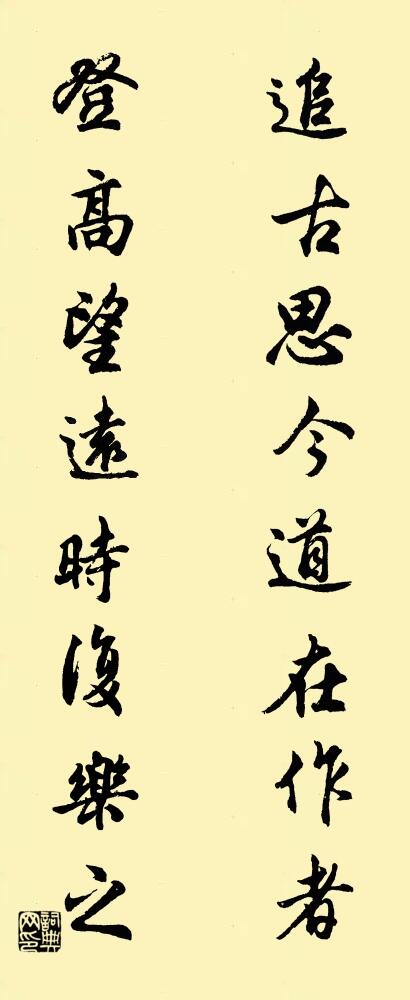 追古思今道在作者
登高望遠時復樂之
詞典網印